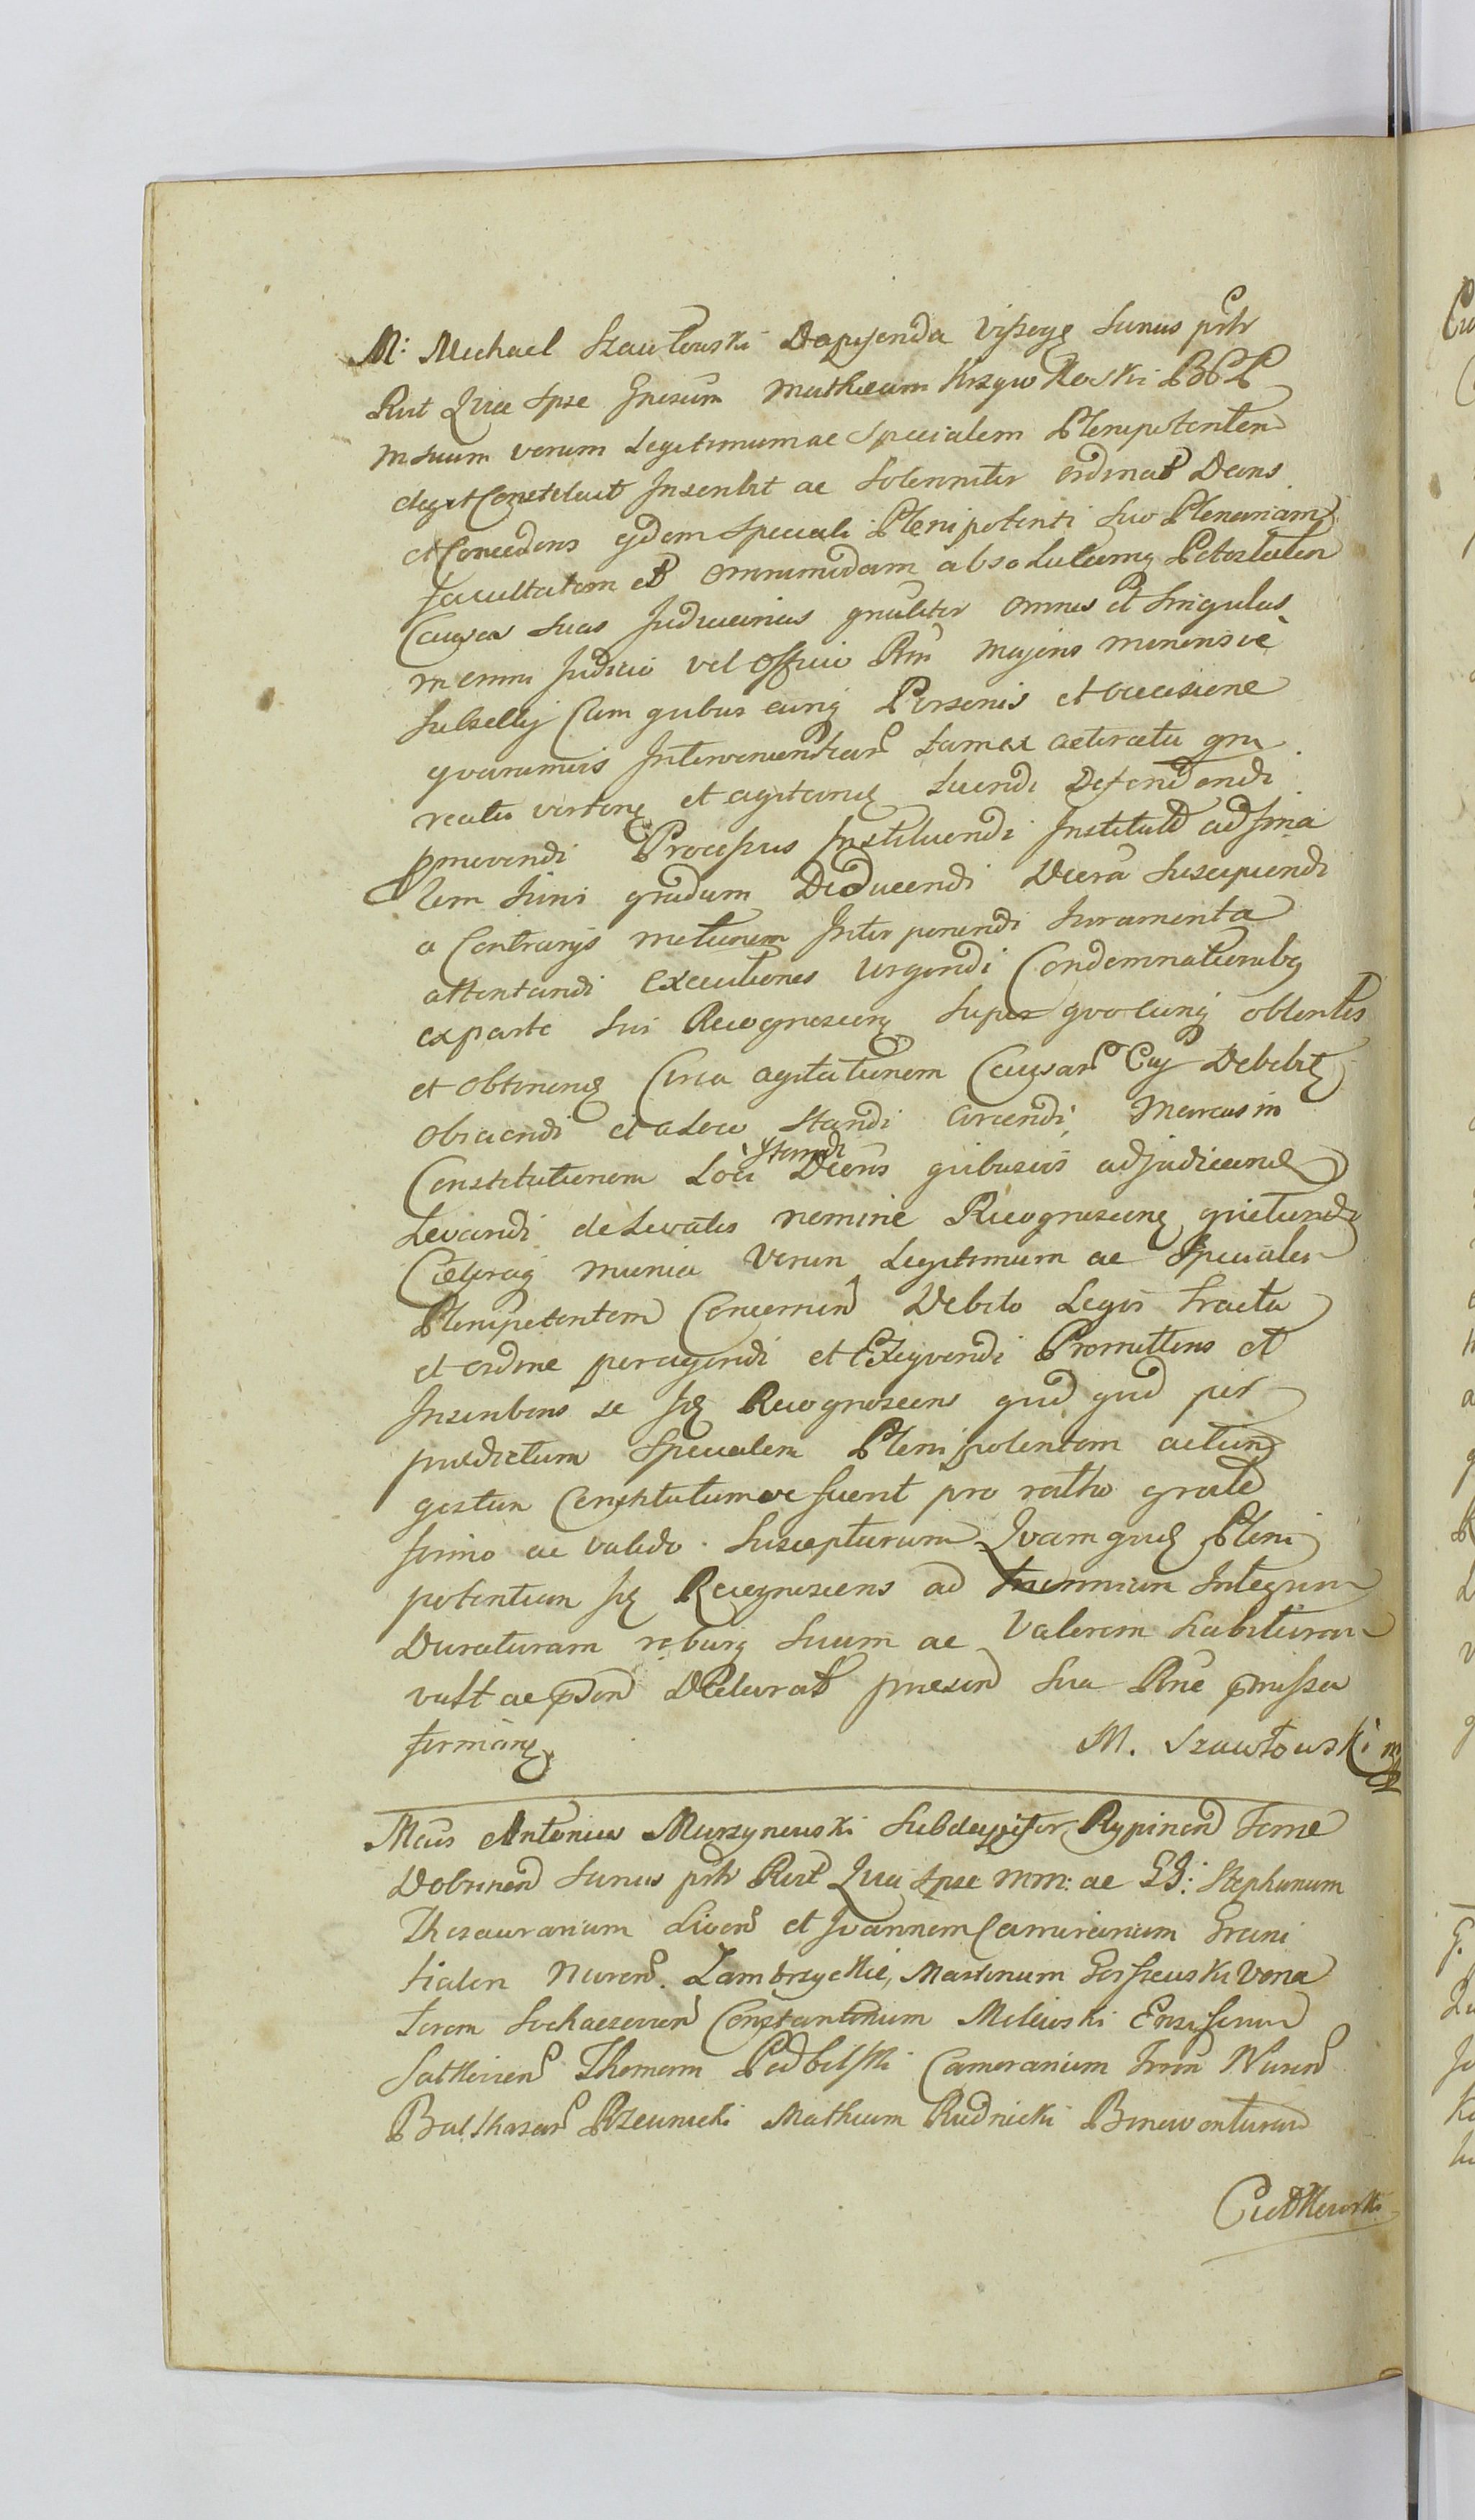 M: Michael Szawłowski Dapiferida Vissogę Sanus prtr
Rut Quia Ipse Gnesum Mathæum Krzywkoski
in suum verum Legitimum ac Specialem Plenipotenten
elegit Constituit Inscribit ac Solenniter ordinat Dans
et Concedens ejdem Speciali Plenipotenti Suo Plenariam
facultatem et omnimodam absolutamq Potestatem
Causas Suas Judiciarias gnaliter omnes et Singulas
in omni Judicio vel Officio Rni Majoris minorisve
Subsellij Cum quibus cunq Personis et occasione
quarumvis Intervenientiar tam ex actoratu qm
reatu verten et agitan Luendi Defendendi
pmovendi Processus Instituendi Institut ad fina
lem Juris gradum Deducendi Decra Suscipiendi
a Contrarys motionem Interponendi Juramenta
attentandi Executiones Urgendi Condemnationibq
ex parte Sui Recognoscen Super quocunq obtentis
et obtinen Circa agitationem Causar Cuj Debebit
Obiiciendi et a Loco Standi arcendi, Marcas in
Constitutionem Loci Standi Decris quibusvis adjudican
Levandi de Levatis nomine Recognoscen quietandi
Cæteraq munia Verum Legitimum ac Specialem
Plenipotentem Concernen Debito Legis tractu
et ordine peragendi et Exequendi Promittens et
Inscribens se Idem Recognoscens quid quid per
prædictum Specialem Plenipotentem actum
gestum Constitutumve fuerit pro ratho grato
firmo ac valido Suscepturum Quamquid Pleni
potentiam Idem Recognoscens ad Triennium Integrum
Duraturam roburq Suum ac Valorem habituram
vult ac Declarat præsen Sua Rne præmissa
firman
M. Szawłowski mp
Mcus Antonius Murzynowski Subdapifer Rypinen Terræ
Dobrinen Sanus prtr Rut Quia Ipse MM: ac GG: Stephanum
Thesaurarium Liven et Joannem Camerarium Grani
tialem Nuren Zambrzyckie, Martinum Gorszewski Vena
torem Sochaczevien Constantinum Milewski Ensiferum
Thomam Podbilski Camerarium Nuren
Balthasar Rzewnicki Matheum Rudnicki Bonaventuram
Cietkowski